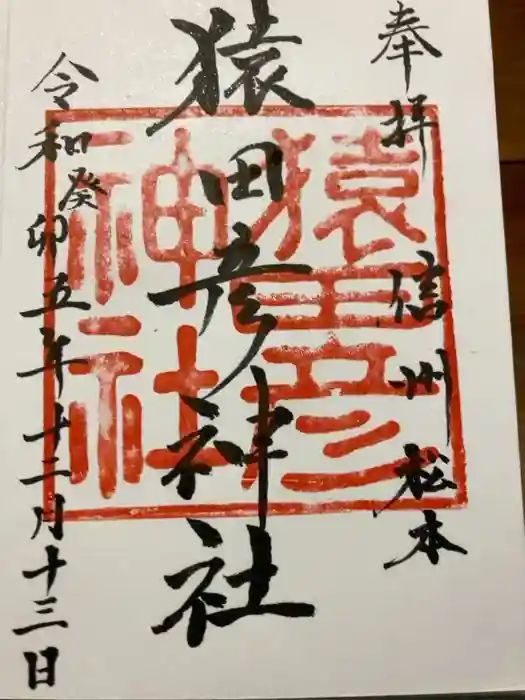 奉拝 信州松本
猿田彦神社
令和癸卯五年十二月十三日
猿田彦
神社